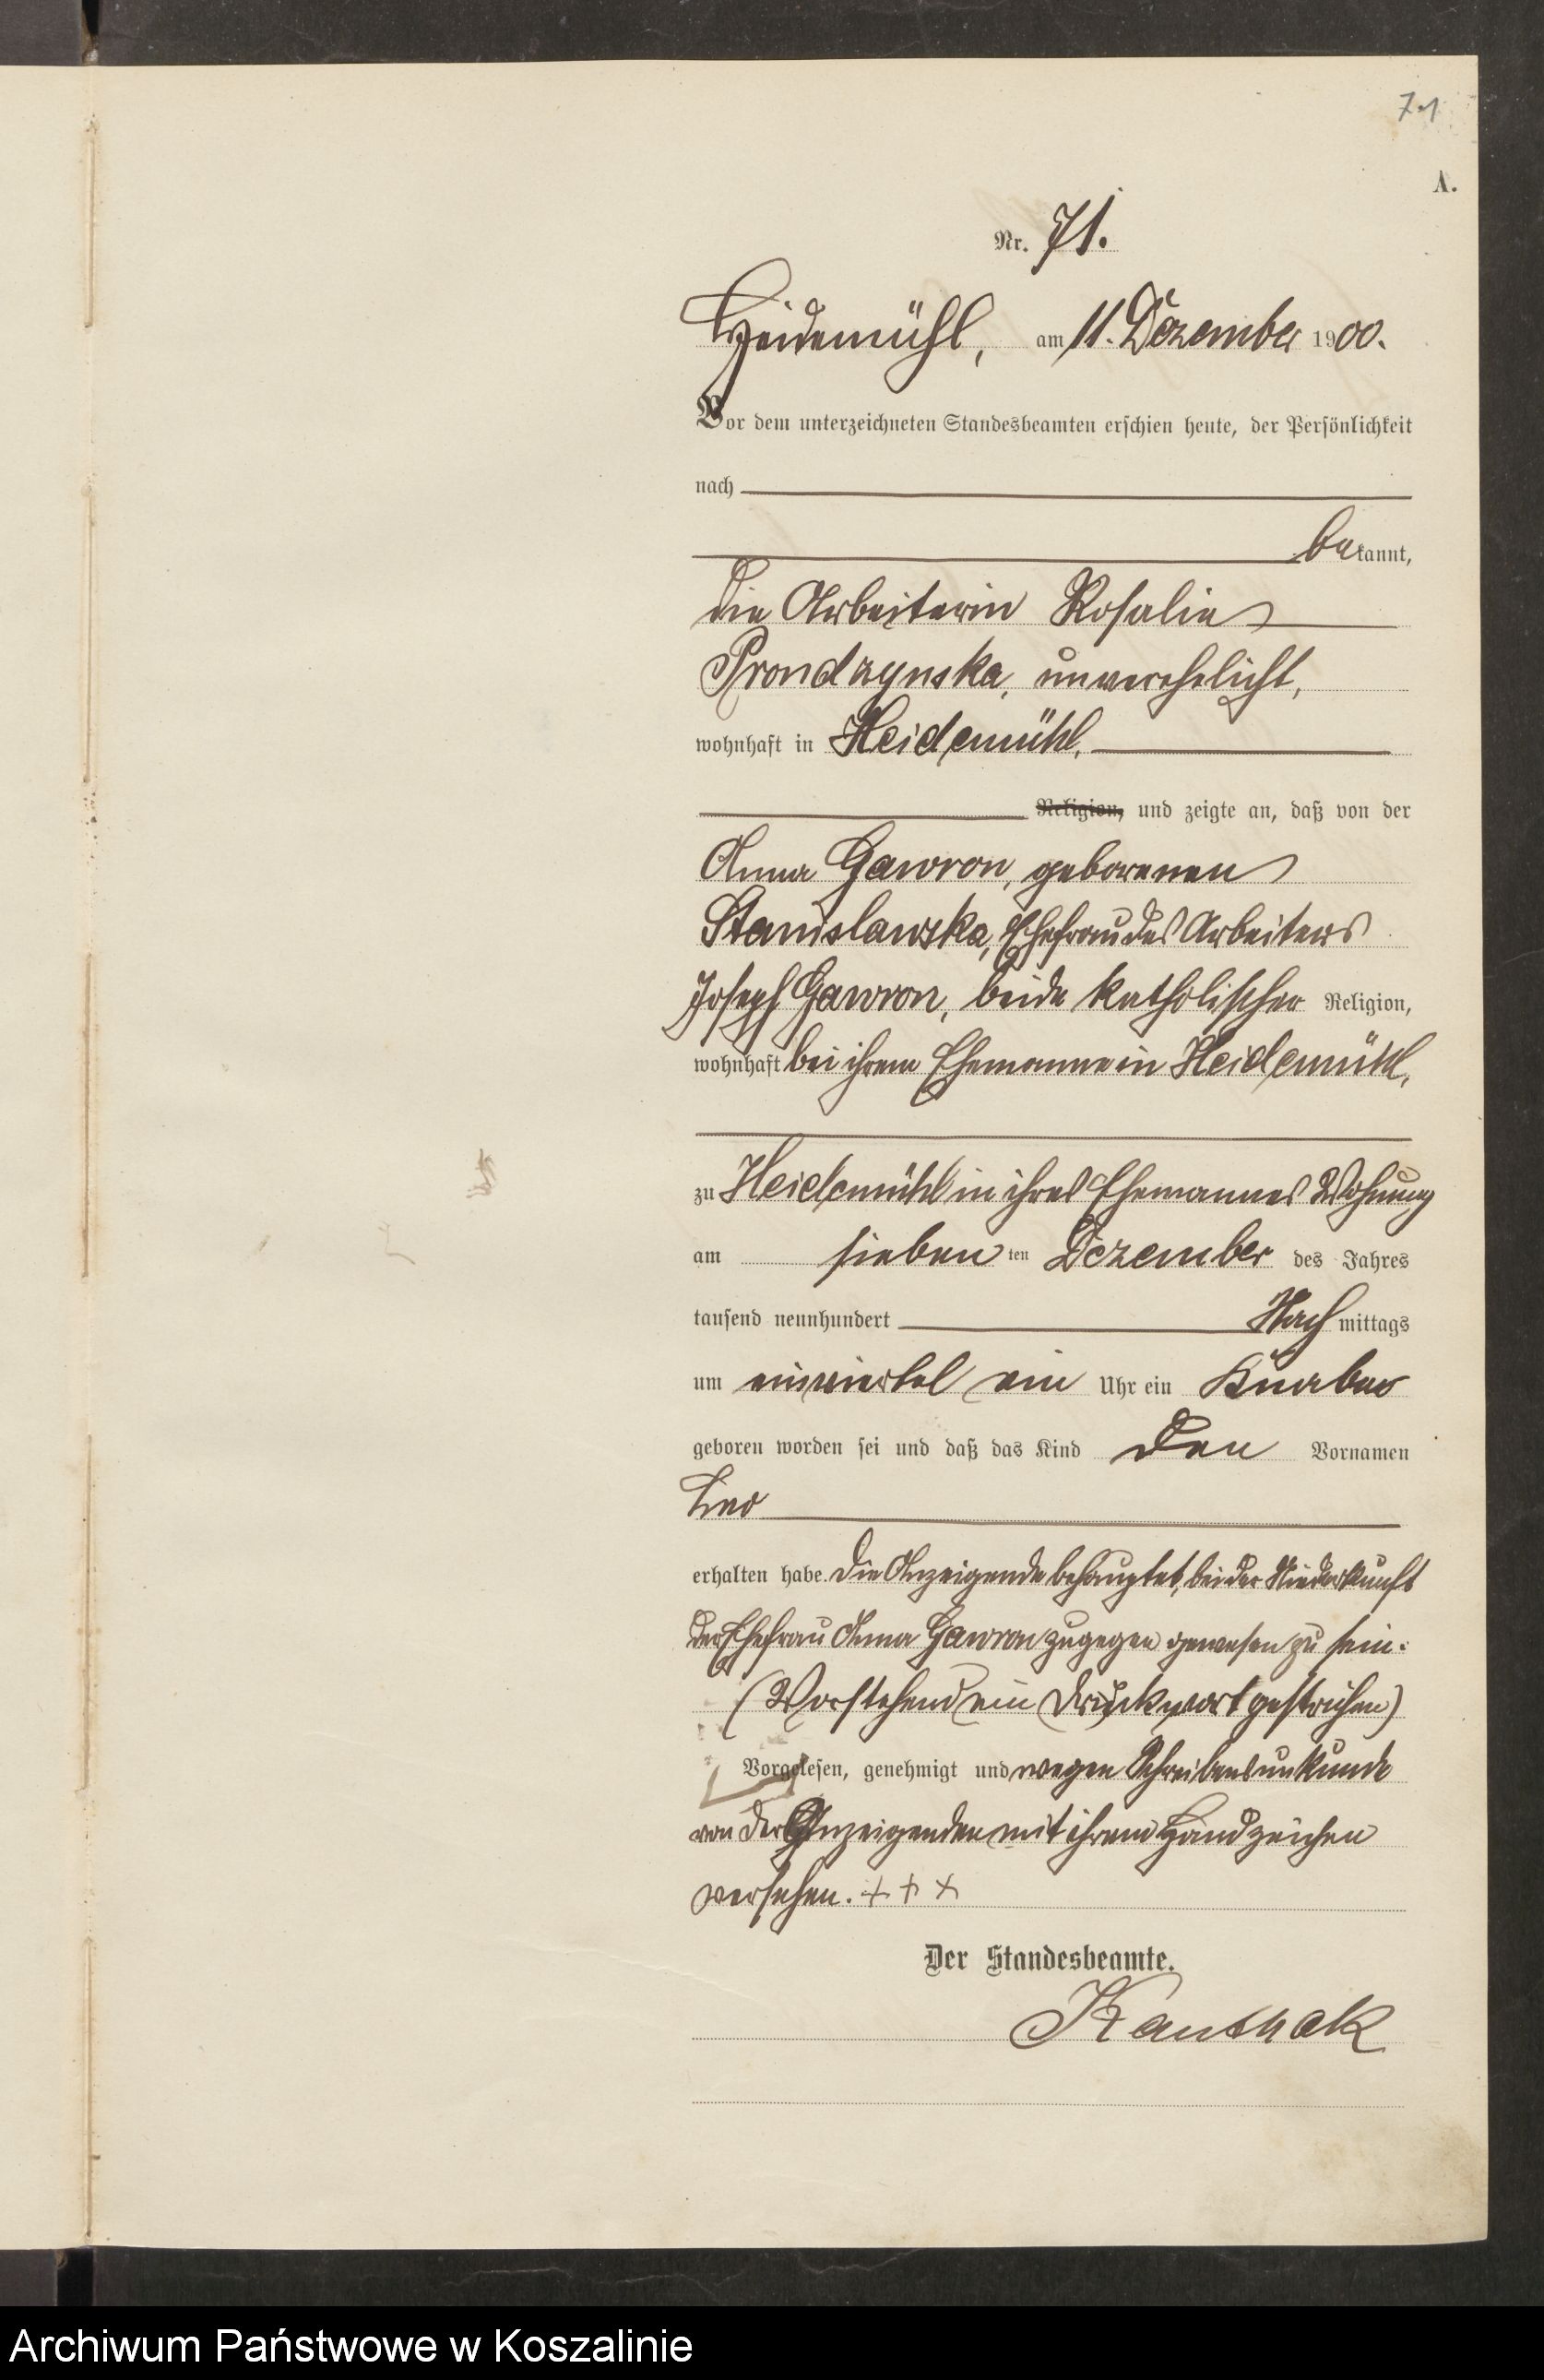 71
A.
Nr. 71.
Heidemühl, am 11. Dezember 1900.
Vor dem unterzeichneten Standesbeamten erschien heute, der Persönlichkeit
nach
bekannt,
die Arbeiterin Rosalie
Prondzynska, unverehelicht,
wohnhaft in Heidemühl,
Religion, und zeigte an, daß von der
Anna Gawron, geborenen
Stanislawska, Ehefrau des Arbeiters
Joseph Gawron, beide katholischer Religion,
wohnhaft bei ihrem Ehemanne in Heidemühl,
zu Heidemühl in ihres Ehemannes Wohnung
am sieben ten Dezember des Jahres
tausend neunhundert Nach mittags
um einviertel ein Uhr ein Knabe
geboren worden sei und daß das Kind den Vornamen
Leo
erhalten habe. Die Anzeigende behauptet, bei der Niederkunft
der Ehefrau Anna Gawron zugegen gewesen zu sein.
(Vorstehend ein Druckwort gestrichen)
Vorgelesen, genehmigt und wegen Schreibensunkunde
von der Anzeigenden mit ihrem Handzeichen
versehen. + + +
Der Standesbeamte.
Kauthak
Archiwum Państwowe w Koszalinie